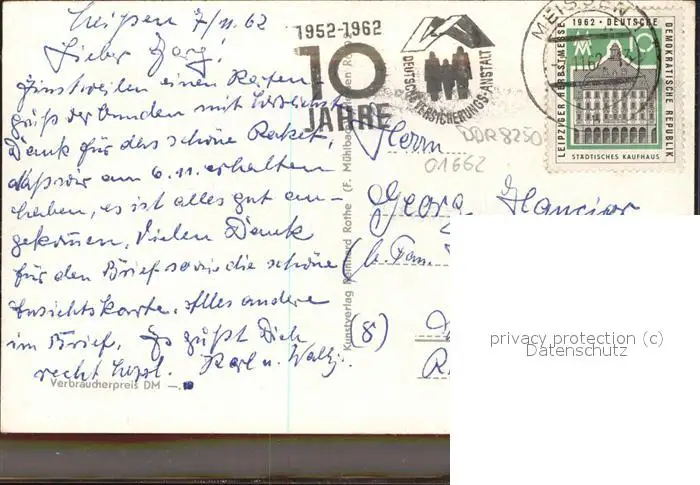 Meißen 7/11.62
Lieber Georg!
Einstweilen einen Karten
gruß verbunden mit herzlichst
Dank für das schöne Paket,
daß wir am 6.11. erhalten
haben, es ist alles gut an-
gekommen, Vielen Dank
für den Brief sowie die schöne
Ansichtskarte. Alles andere
im Brief. Es grüßt Dich
recht herzl. Karl u.
Verbraucherpreis DM
Kunstverlag Reinhard Rothe (F. Mühlbach
1952-1962
10
JAHRE
DEUTSCHE VERSICHERUNGS-ANSTALT
MEISSEN
DDR 8250
01662
LEIPZIGER HERBSTMESSE 1962 · DEUTSCHE DEMOKRATISCHE REPUBLIK
10
STÄDTISCHES KAUFHAUS
Herrn
Georg
(b. Fam.
(8)
privacy protection (c)
Datenschutz